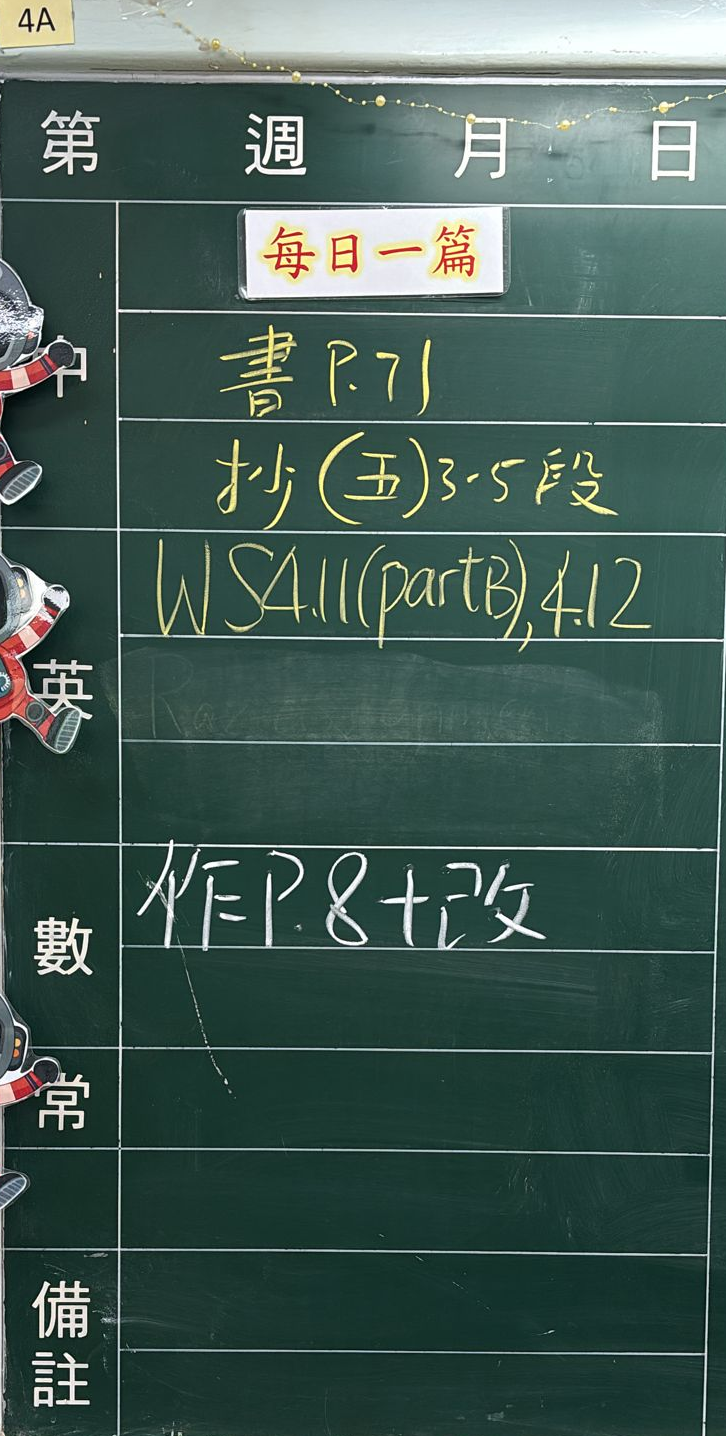 4A
第 週 月 日
每日一篇
中 書 P.71
抄(五)3-5段
英 WS4.11(partB),4.12
數 作P.8+改
常
備註